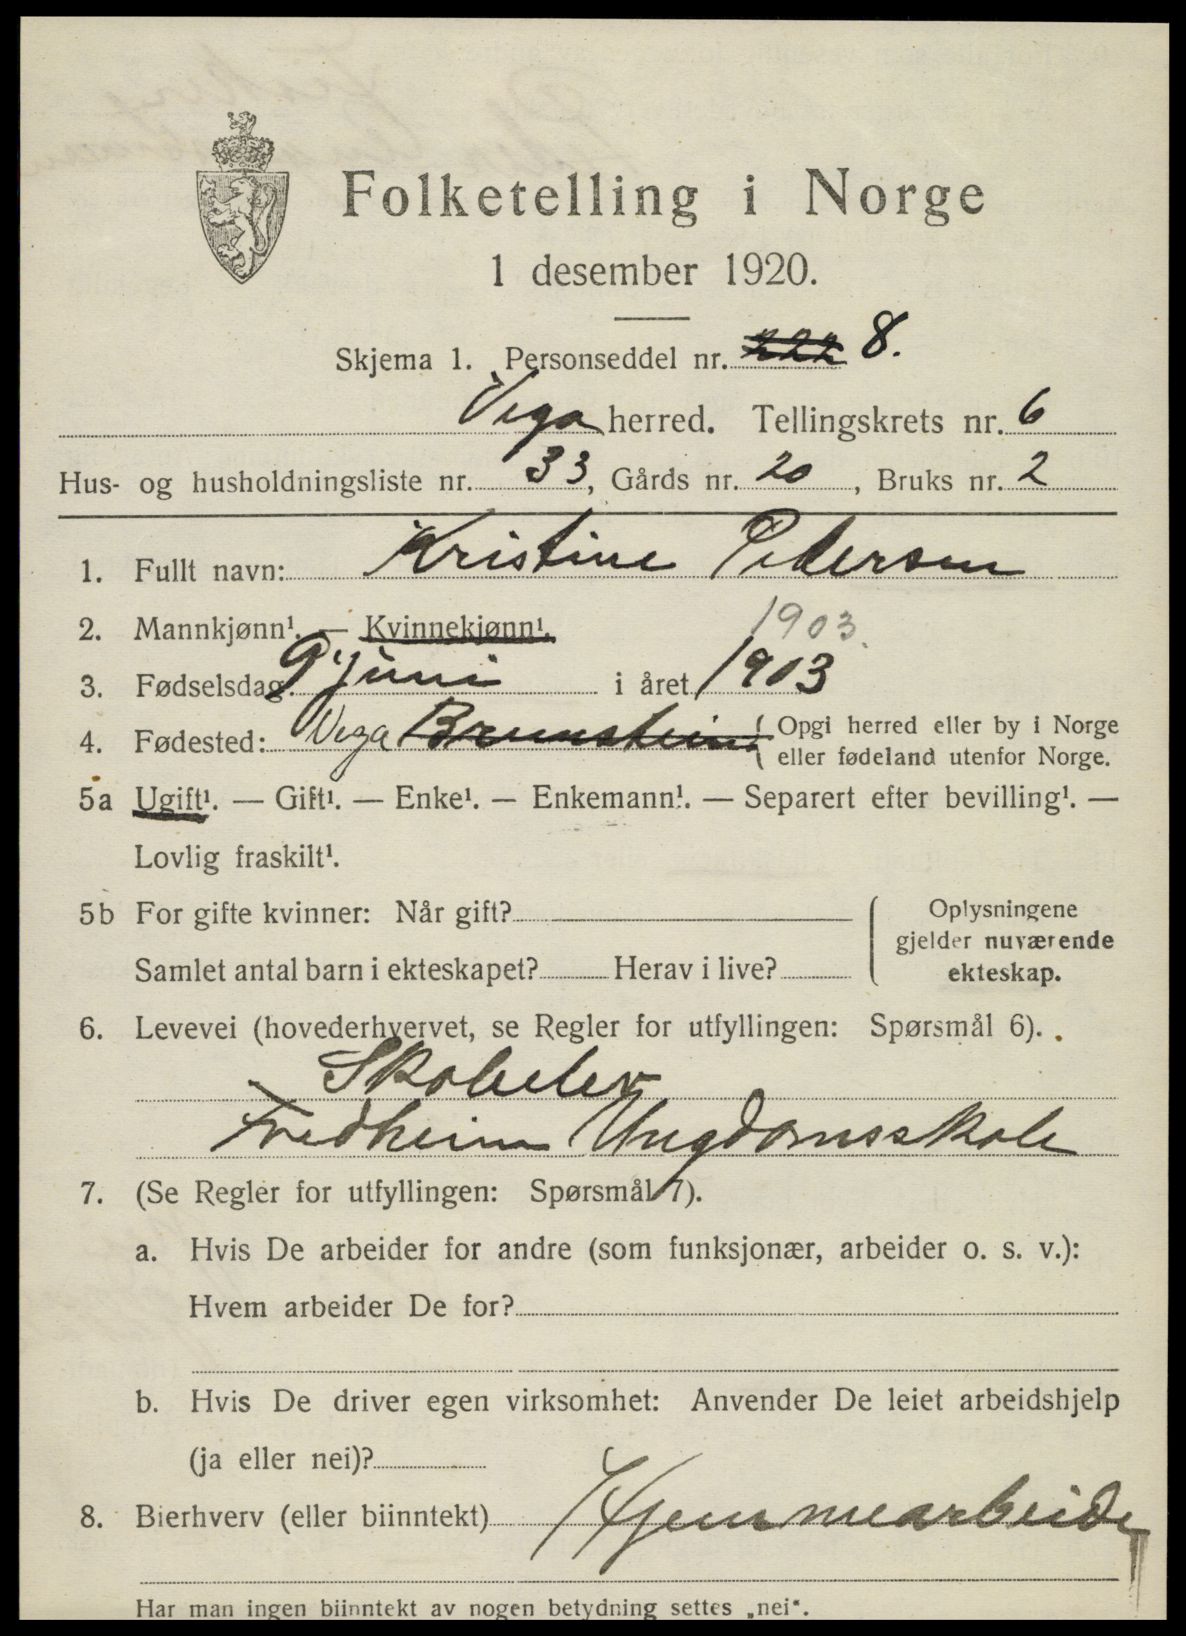 Folketelling i Norge
1 desember 1920.
Skjema 1. Personseddel nr. 222 8.
Vega herred. Tellingskrets nr. 6
Hus- og husholdningsliste nr. 33, Gårds nr. 20, Bruks nr. 2
1. Fullt navn: Kristine Pedersen
1903.
2. Mannkjønn¹. — Kvinnekjønn¹.
3. Fødselsdag: 9 juni i året 1903
4. Fødested: Vega { Opgi herred eller by i Norge
eller fødeland utenfor Norge.
5a Ugift¹. — Gift¹. — Enke¹. — Enkemann¹. — Separert efter bevilling¹. —
Lovlig fraskilt¹.
5b For gifte kvinner: Når gift?
Samlet antal barn i ekteskapet? Herav i live?
{ Oplysningene
gjelder nuværende
ekteskap.
6. Levevei (hovederhvervet, se Regler for utfyllingen: Spørsmål 6).
Skoleelev
Fredheim Ungdomsskole
7. (Se Regler for utfyllingen: Spørsmål 7).
a. Hvis De arbeider for andre (som funksjonær, arbeider o. s. v.):
Hvem arbeider De for?
b. Hvis De driver egen virksomhet: Anvender De leiet arbeidshjelp
(ja eller nei)?
8. Bierhverv (eller biinntekt) Hjemmearbeide
Har man ingen biinntekt av nogen betydning settes „nei“.